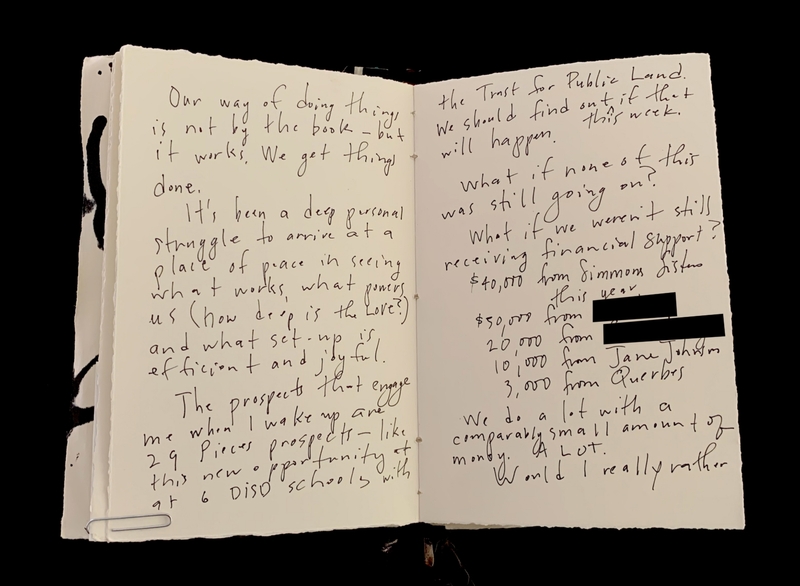 Our way of doing things
is not by the book – but
it works. We get things
done.
It's been a deep personal
struggle to arrive at a
place of peace in seeing
what works, what powers
us (how deep is the Love?)
and what set-up is
efficient and joyful.
The prospects that engage
me when I wake up are
29 Pieces prospects – like
this new opportunity at
at 6 DISD schools with
the Trust for Public Land.
We should find out if that
will happen. this week.
What if none of this
was still going on?
What if we weren't still
receiving financial support?
$40,000 from Simmons Sisters
this year
$50,000 from
20,000 from
10,000 from Jane Johnston
3,000 from Querbes
We do a lot with a
comparably small amount of
money. A LOT.
Would I really rather